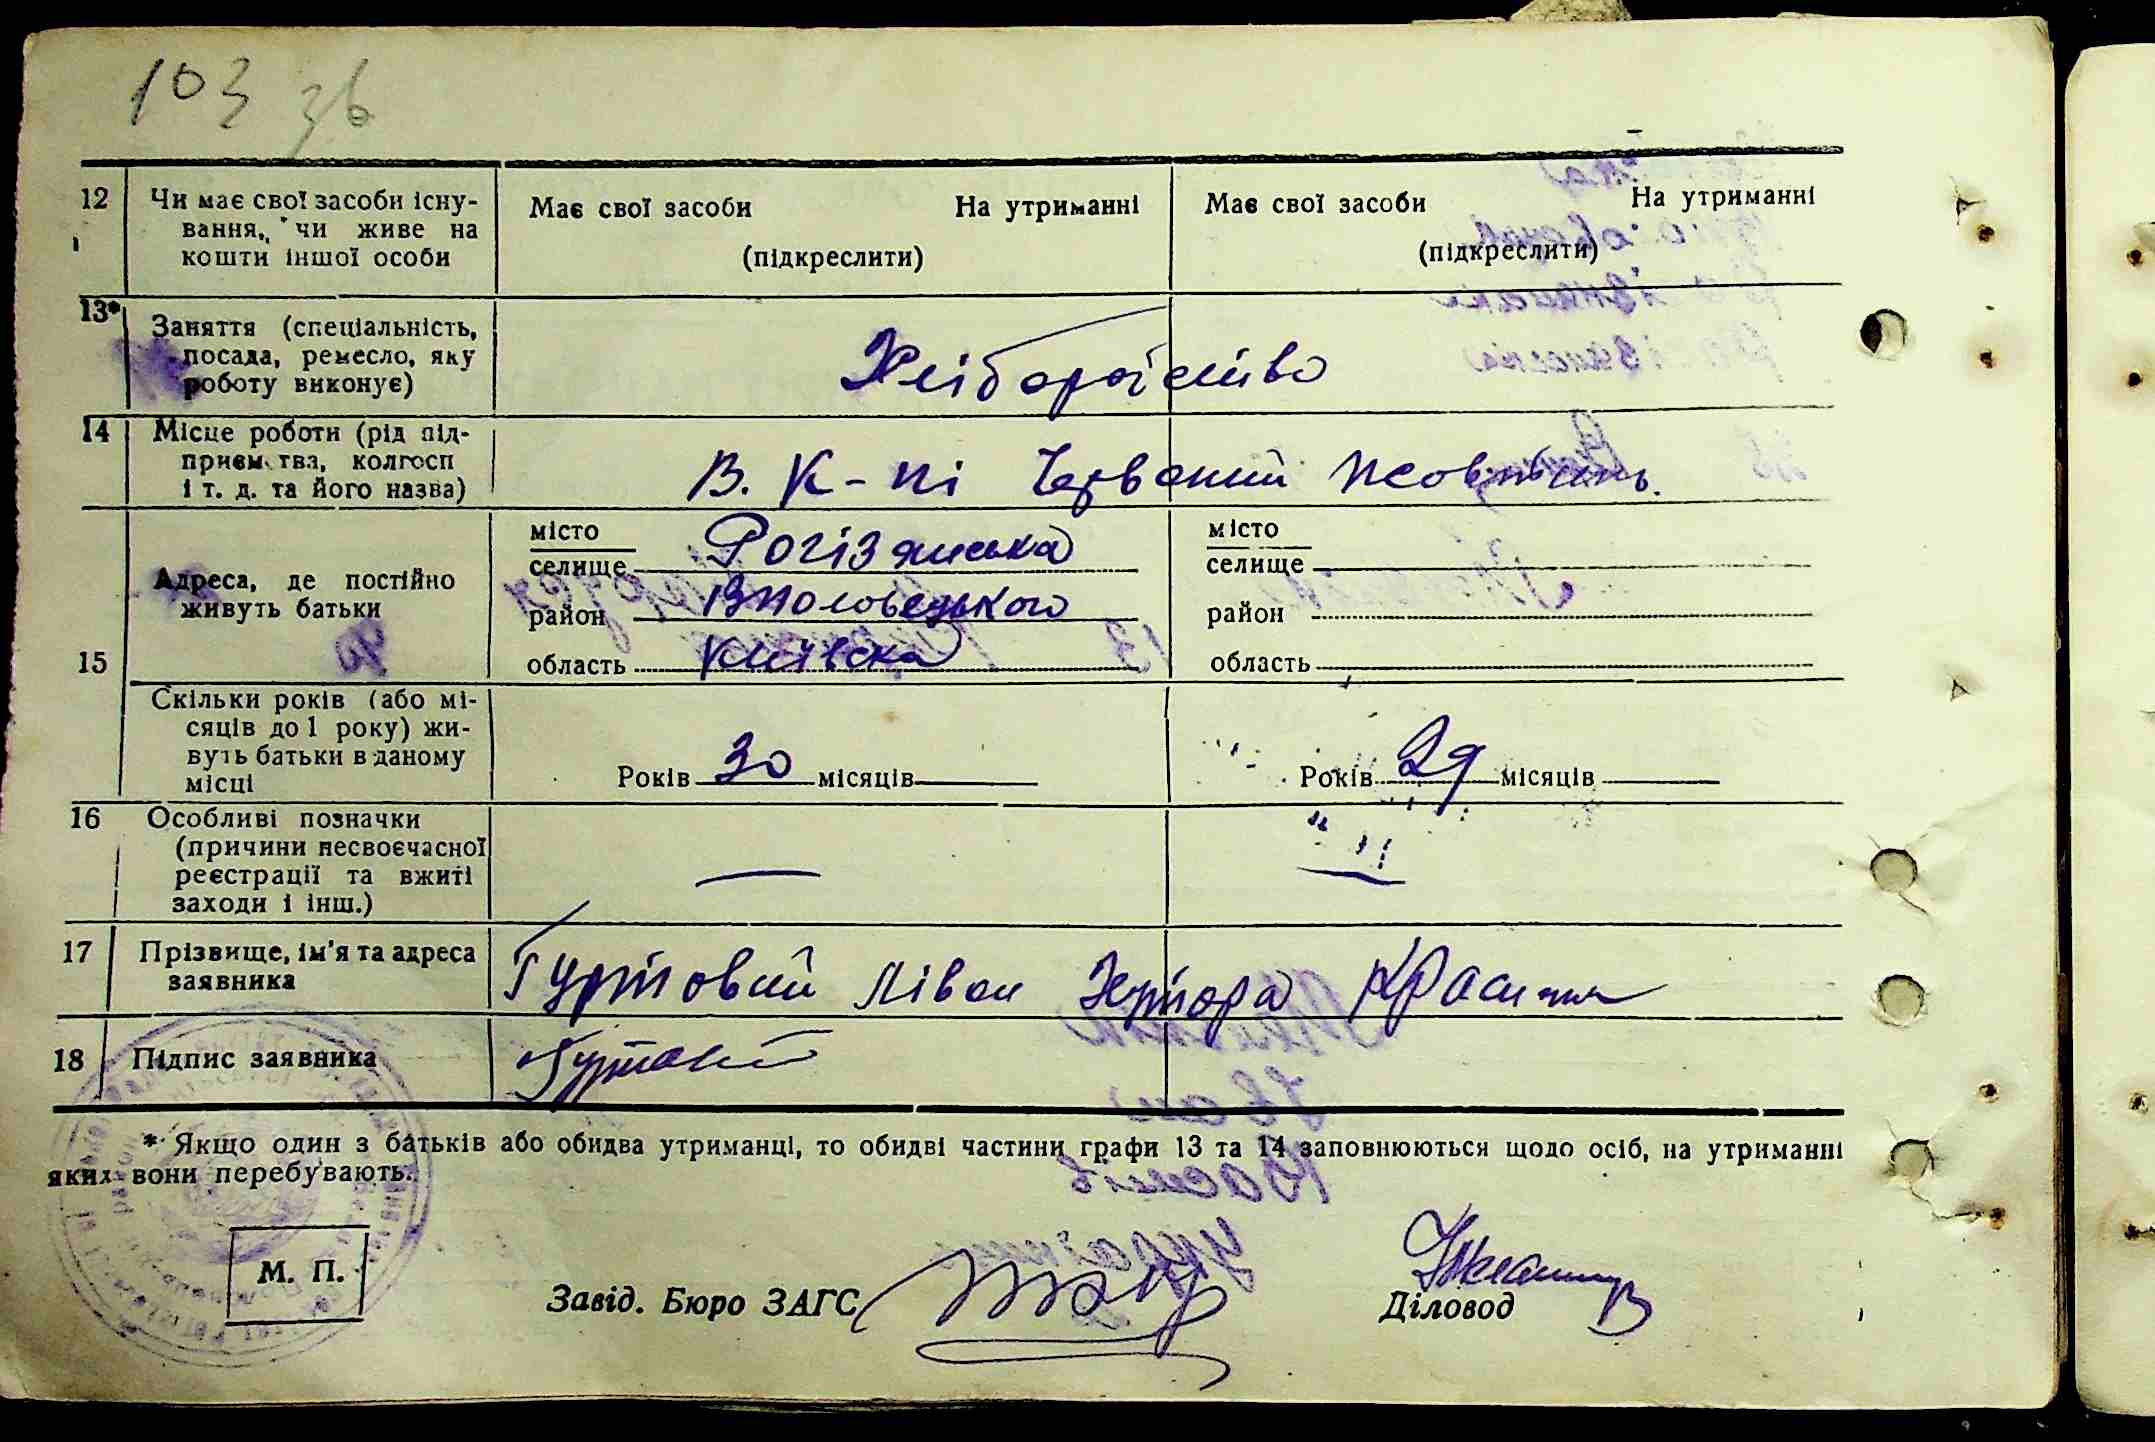 103 зв
12 Чи має свої засоби існу-
вання, чи живе на
кошти іншої особи
Має свої засоби На утриманні
(підкреслити)
Має свої засоби На утриманні
(підкреслити)
13* Заняття (спеціальність,
посада, ремесло, яку
роботу виконує)
Хліборобство
14 Місце роботи (рід під-
приємства, колгосп
і т. д. та його назва)
В. К-пі Червоний Жовтень.
15 Адреса, де постійно
живуть батьки
місто
селище Рогізянська
район Володовецького
область Київська
місто
селище
район
область
Скільки років (або мі-
сяців до 1 року) жи-
вуть батьки в даному
місці
Років 30 місяців
Років 29 місяців
16 Особливі позначки
(причини несвоєчасної
реєстрації та вжиті
заходи і інш.)
17 Прізвище, ім'я та адреса
заявника
Гуртовий
18 Підпис заявника
* Якщо один з батьків або обидва утриманці, то обидві частини графи 13 та 14 заповнюються щодо осіб, на утриманні
яких вони перебувають.
М. П.
Завід. Бюро ЗАГС
Діловод